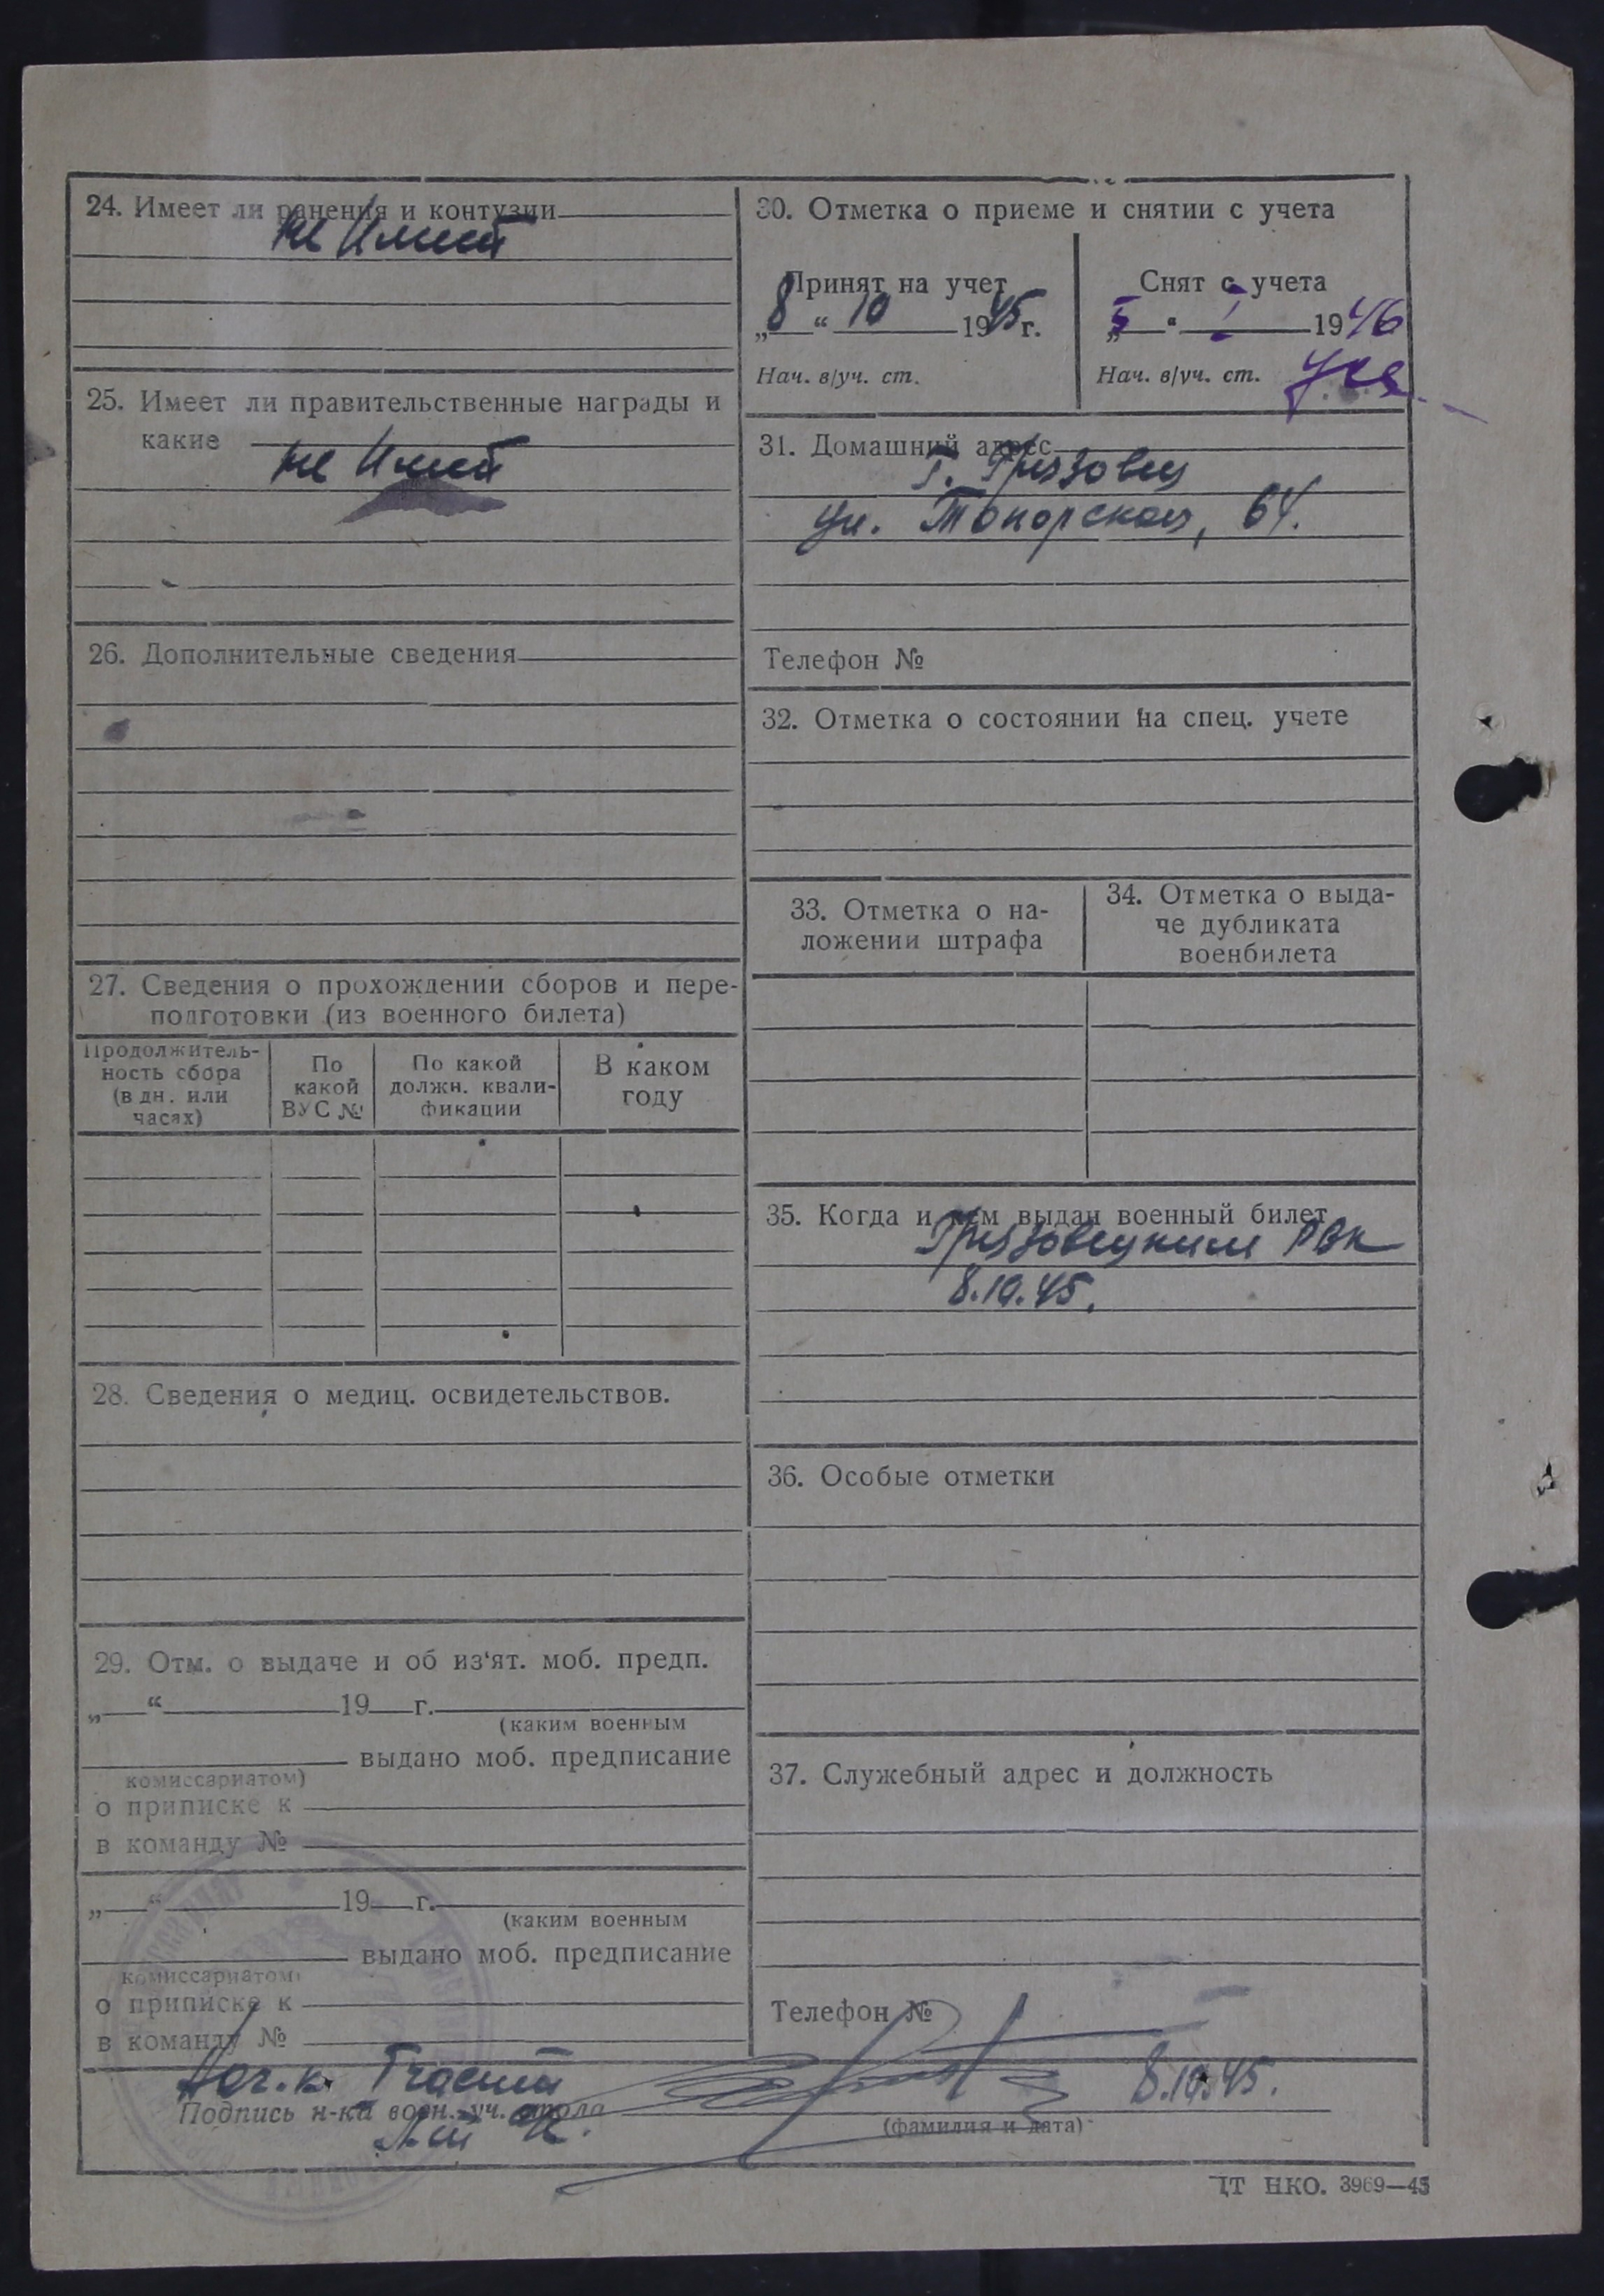 24. Имеет ли ранения и контузии
не имеет
25. Имеет ли правительственные награды и
какие
не имеет
26. Дополнительные сведения
27. Сведения о прохождении сборов и пере-
подготовки (из военного билета)
Продолжитель-
ность сбора
(в дн. или
часах)
По
какой
ВУС №
По какой
должн. квали-
фикации
В каком
году
28. Сведения о медиц. освидетельствов.
29. Отм. о выдаче и об из‘ят. моб. предп.
„ “ 19 г.
(каким военным
выдано моб. предписание
комиссариатом)
о приписке к
в команду №
„ “ 19 г.
(каким военным
выдано моб. предписание
комиссариатом)
о приписке к
в команду №
30. Отметка о приеме и снятии с учета
Принят на учет
„8“ 10 1945 г.
Нач. в/уч. ст.
Снят с учета
„5“ I 1946
Нач. в/уч. ст.
31. Домашний адрес
г. Грязовец
ул. Топорская, 64.
Телефон №
32. Отметка о состоянии на спец. учете
33. Отметка о на-
ложении штрафа
34. Отметка о выда-
че дубликата
военбилета
35. Когда и кем выдан военный билет
Грязовецким РВК
8.10.45.
36. Особые отметки
37. Служебный адрес и должность
Телефон №
Нач. 1 части
8.10.45.
Подпись н-ка воен.-уч. стола
(фамилия и дата)
ЦТ НКО. 3969—45